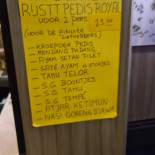 RIJSTT PEDIS ROYAL
VOOR 2 PERS
(VOOR DE PIKANTE
LIEFHEBBERS)
- KROEPOEK PEDIS
- RENDANG PADANG
- AJAM SETAN FILET
- SATE AJAM 4 STOKJES
- TAHU TELOR
- S.G BOONTJES
- S.G TAHU
- S.G TEMPE
- ATJAR KETIMUN
- NASI GORENG DJAWA